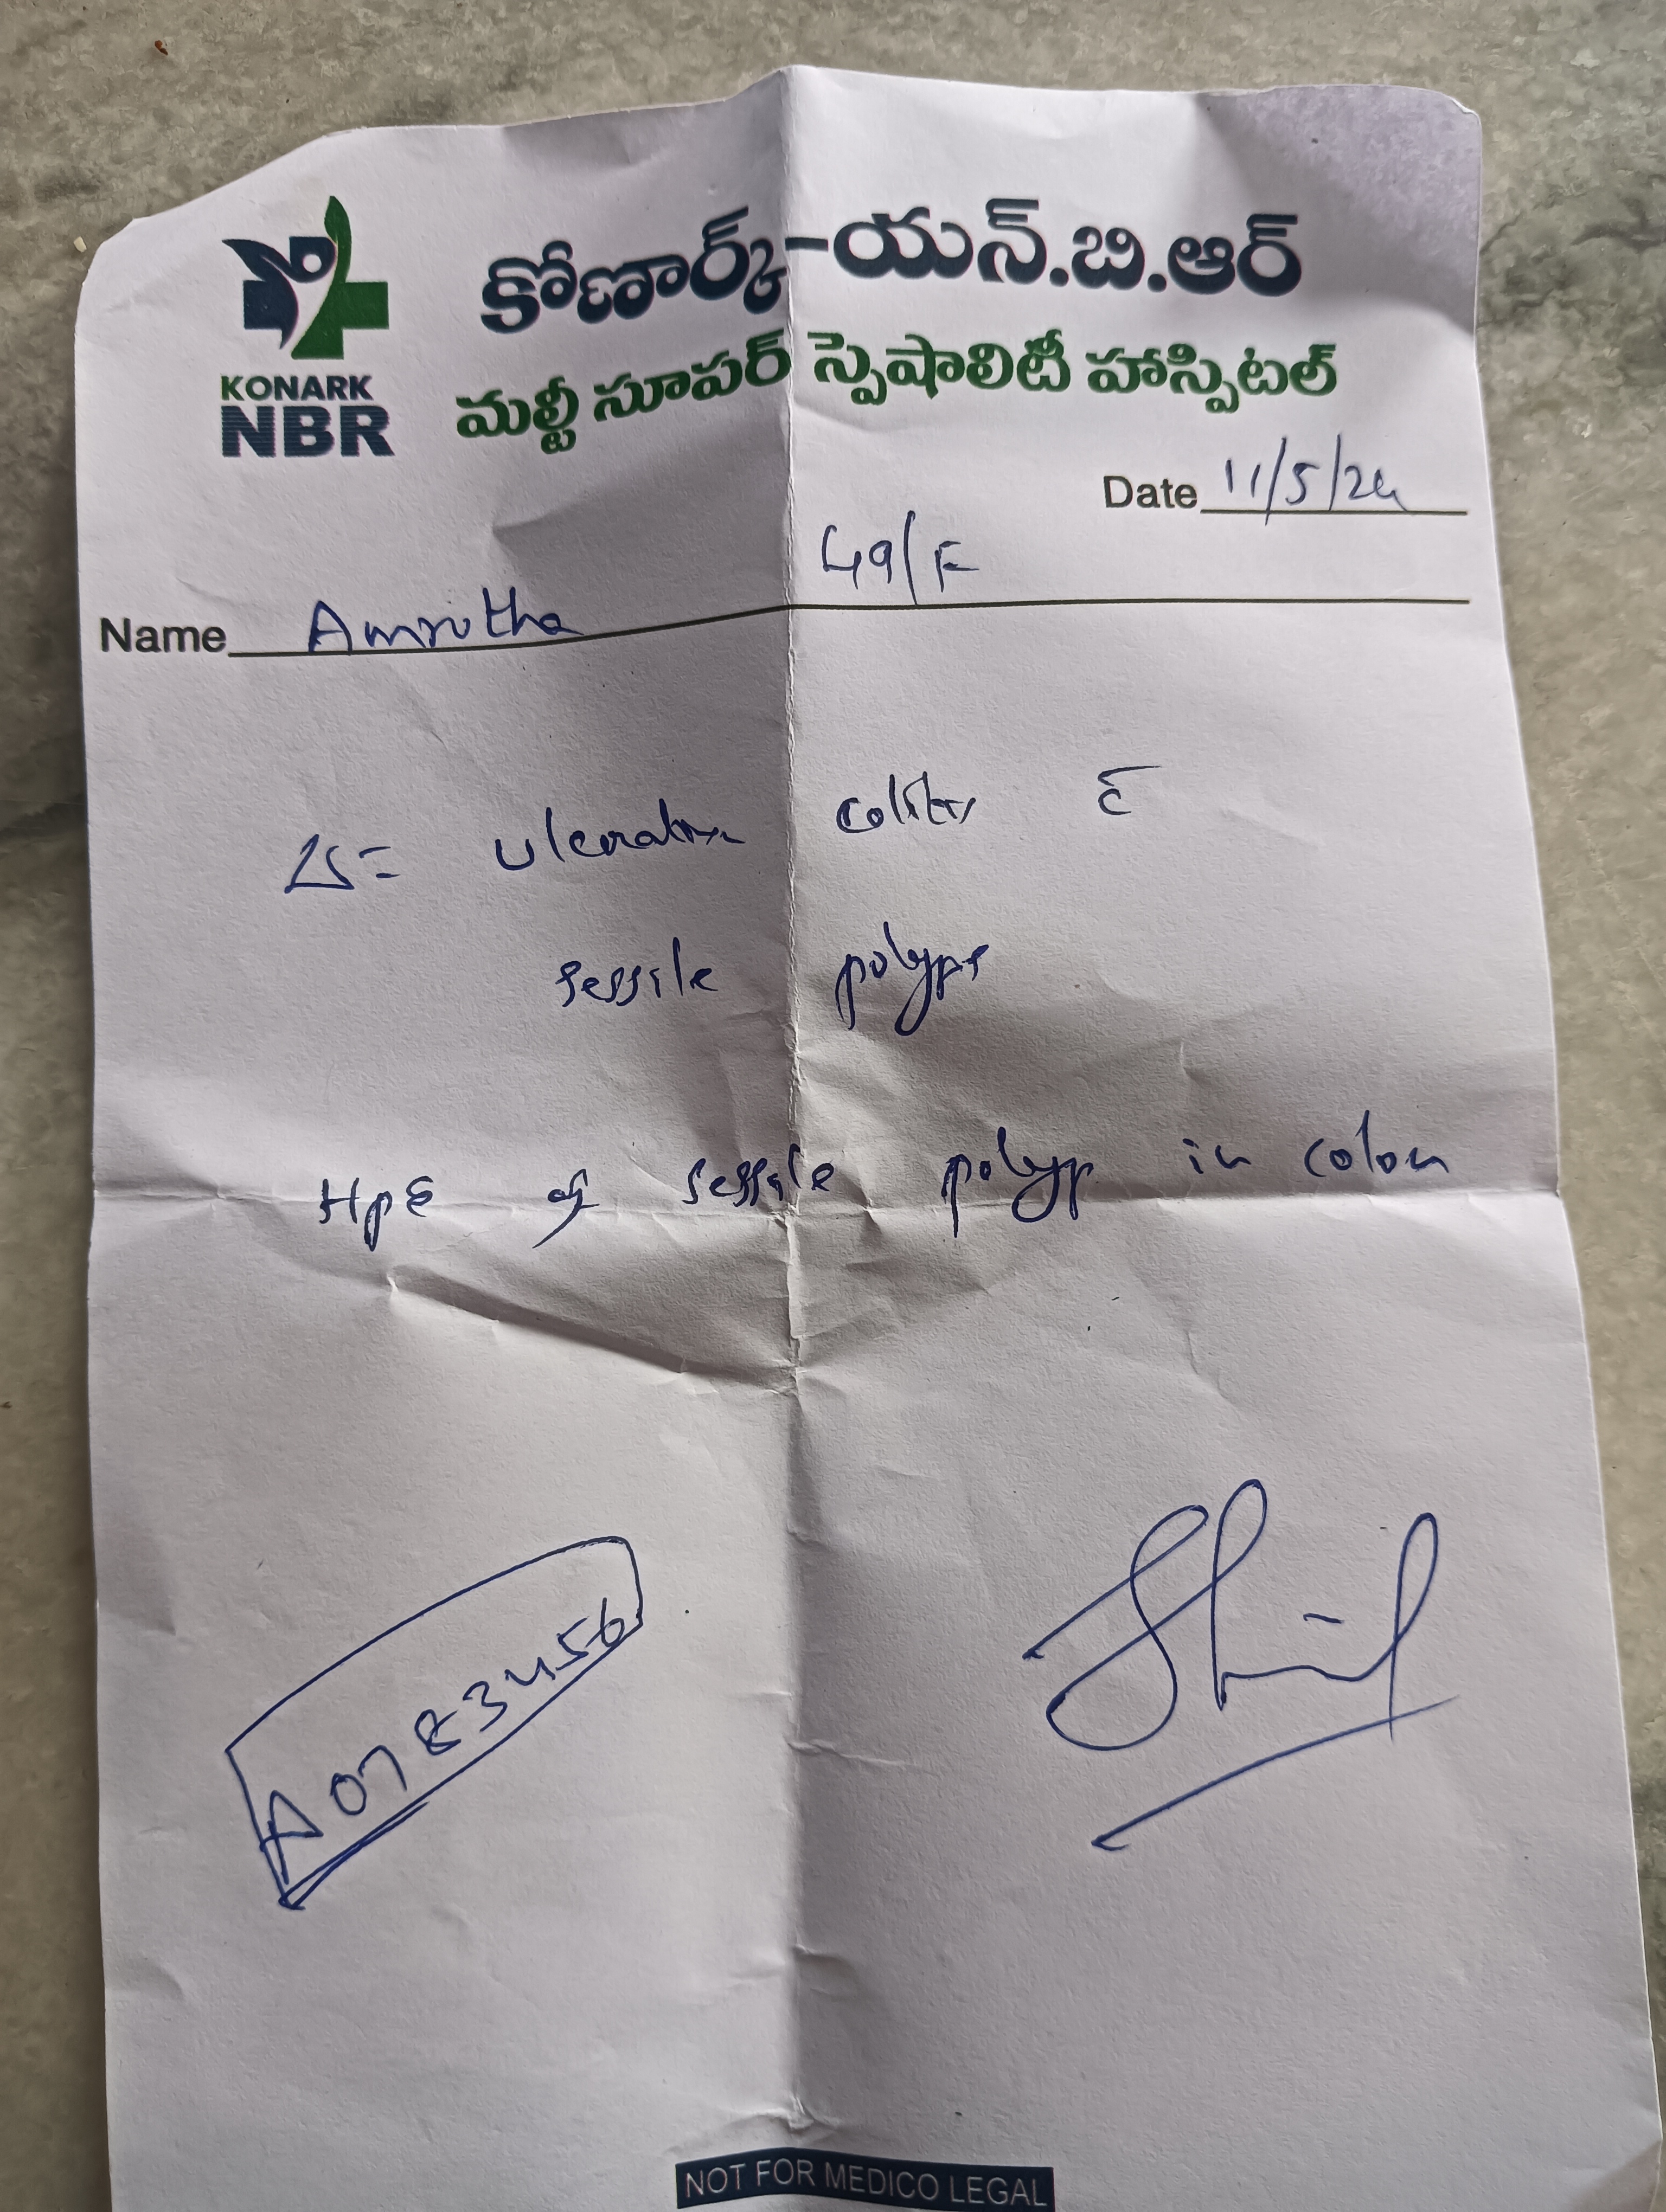 KONARK
NBR
కోణార్క్-యన్.బి.ఆర్
మల్టీ సూపర్ స్పెషాలిటీ హాస్పిటల్
Date 11/5/24
Name Amrutha 49/F
Δ= ulcerative colitis c̄
sessile polyps
HPE of sessile polyp in colon
A0783456
NOT FOR MEDICO LEGAL